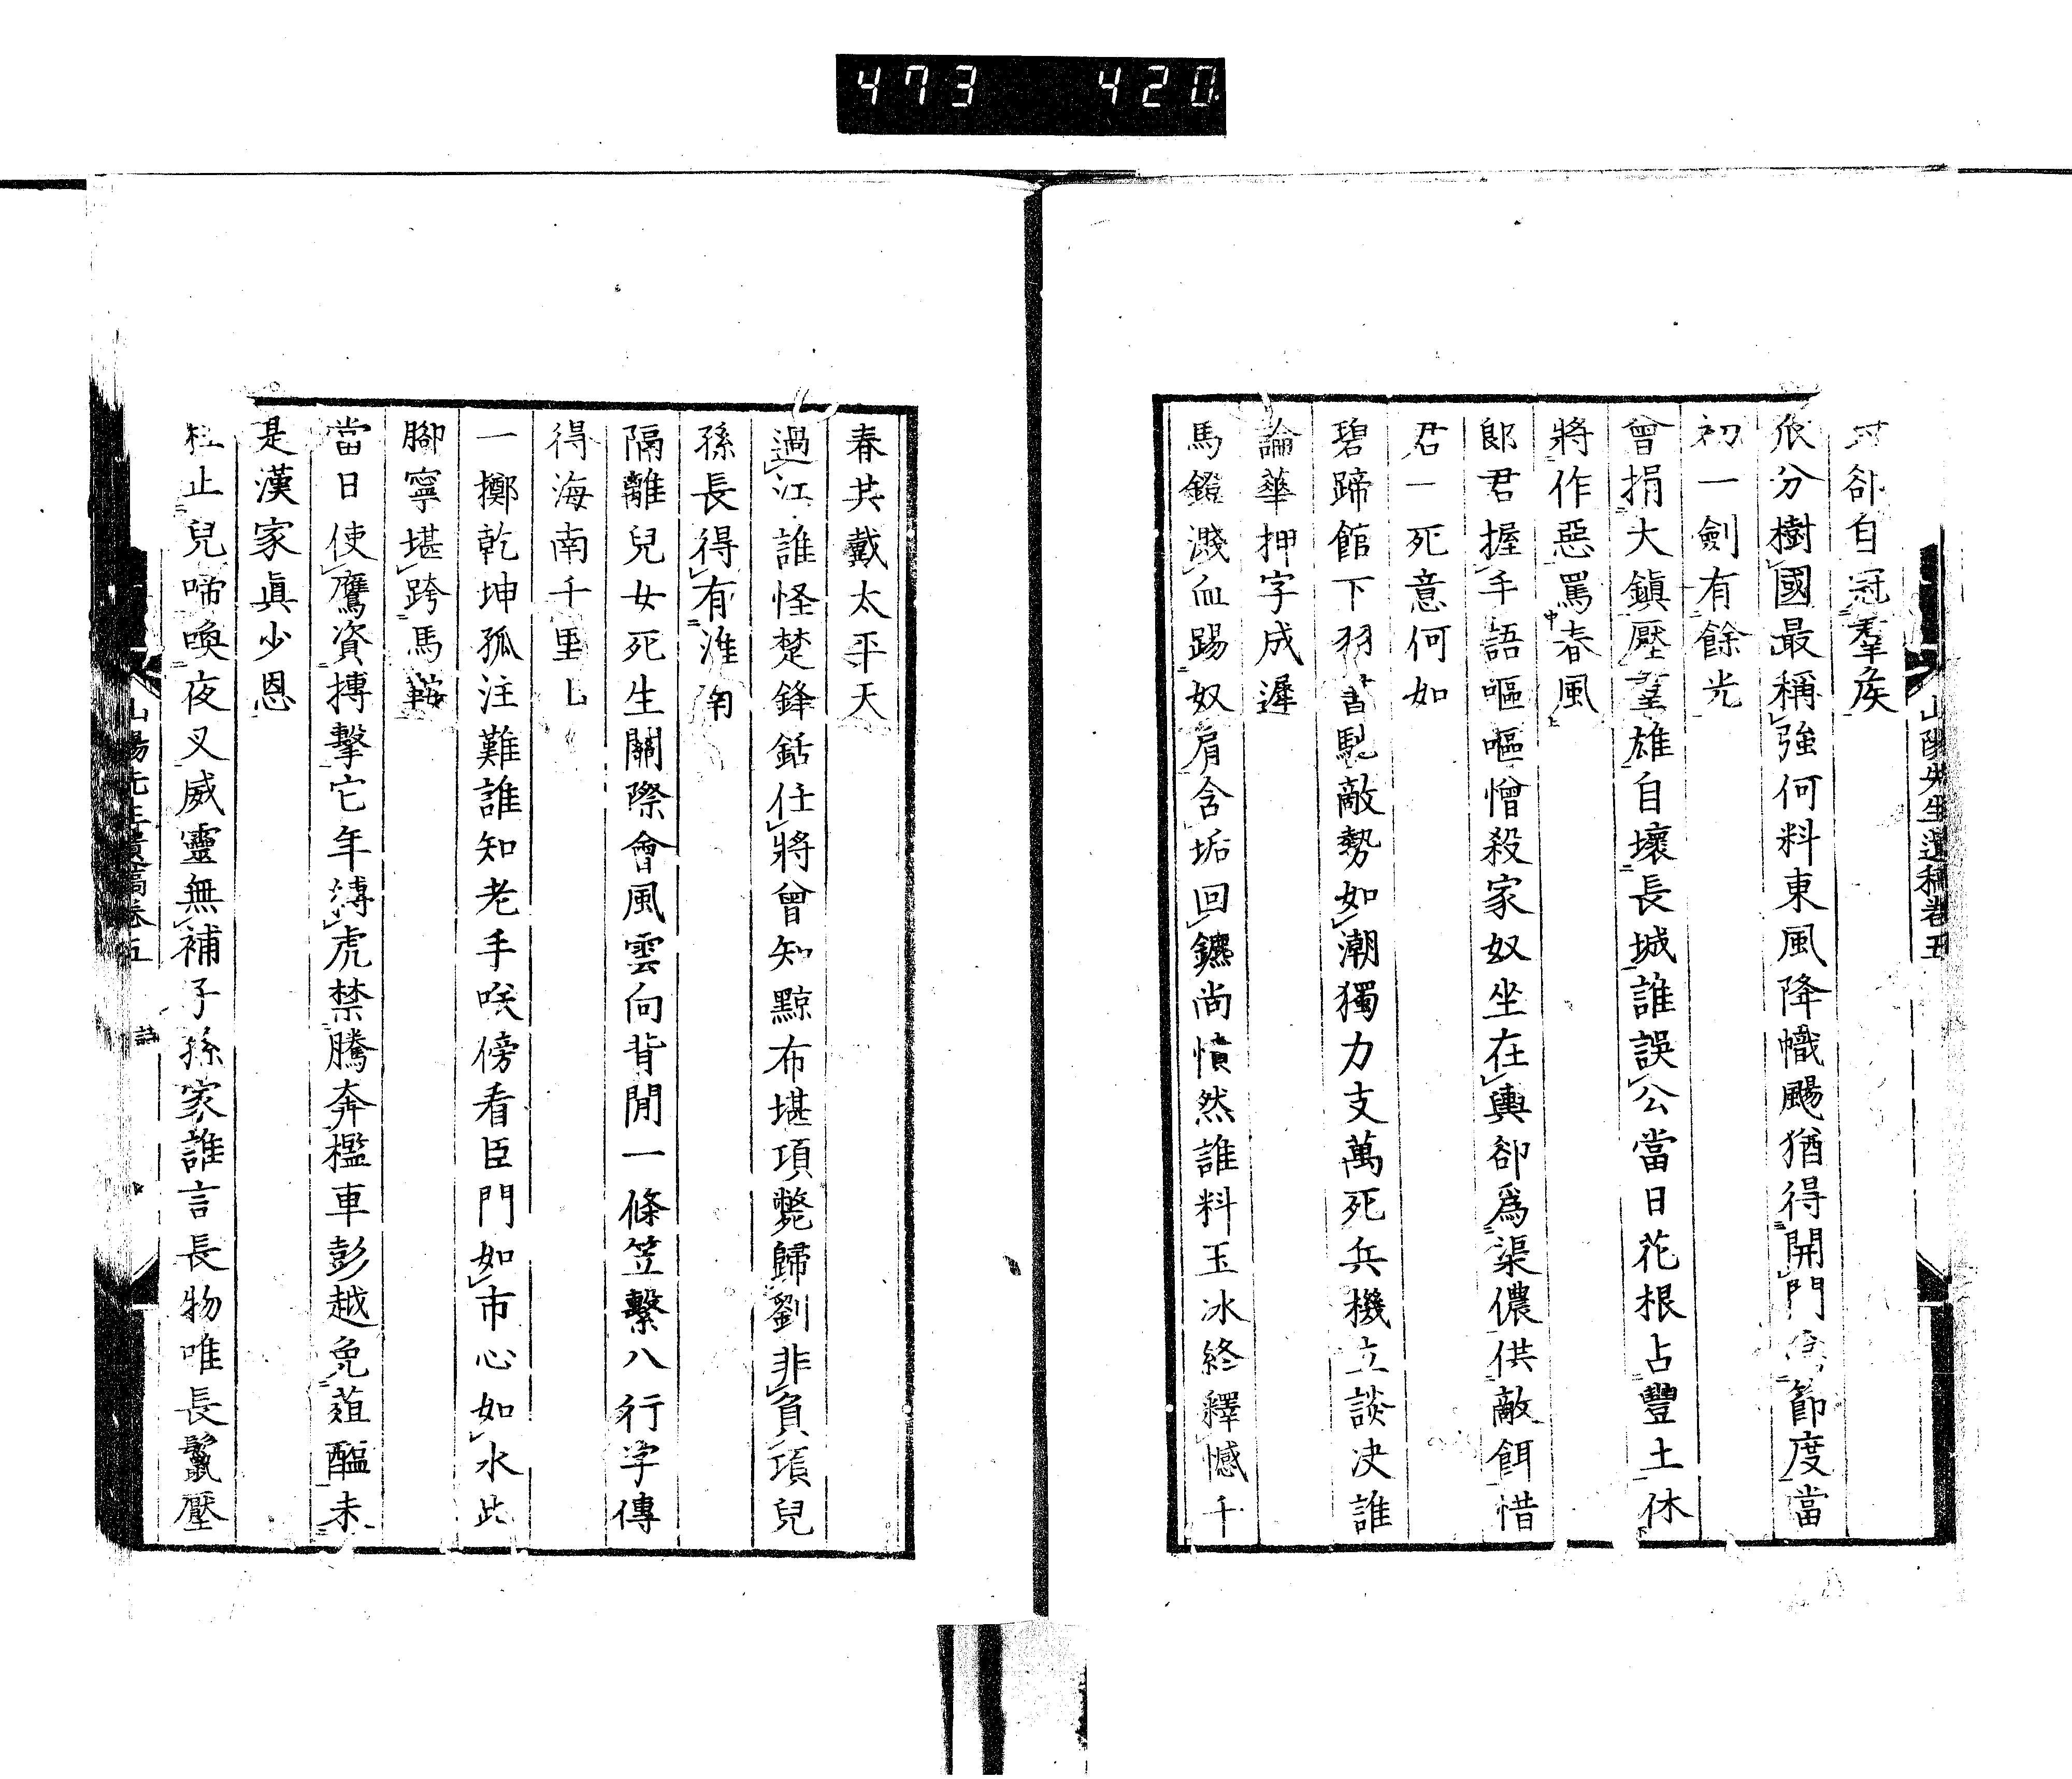 473 420
山陽先生遺稿卷五
卻自冠羣侯
派分樹國最稱強何料東風降幟颺猶得開門爲節度當
初一劍有餘光
曾捐大鎭壓羣雄自壞長城誰誤公當日花根占豐土休
將作惡罵春風
郎君握手語嘔嘔憎殺家奴坐在輿卻爲渠儂供敵餌惜
君一死意何如
碧蹄館下羽書馳敵勢如潮獨力支萬死兵機立談决誰
論華押字成遲
馬鐙濺血踢奴肩含垢回鑣尚憤然誰料玉冰終釋憾千
春共戴太平天
過江誰怪楚鋒銛任將曾知黥布堪項斃歸劉非負項兒
孫長得有淮南
隔離兒女死生關際會風雲向背閒一條笠繫八行字傳
得海南千里
一擲乾坤孤注難誰知老手咲傍看臣門如市心如水此
腳寧堪跨馬鞍
當日使鷹資搏擊它年縛虎禁騰奔檻車彭越免葅醢未
是漢家眞少恩
枉止兒啼喚夜叉威靈無補子孫家誰言長物唯長鬣壓
山陽先生遺稿卷五
詩